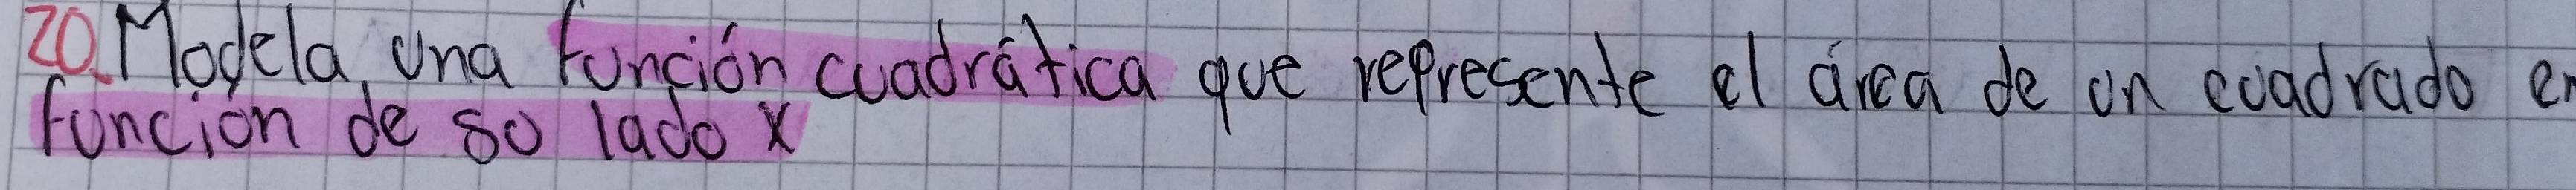 20. Modela una función cuadrática que represente el área de un cuadrado en
función de su lado x